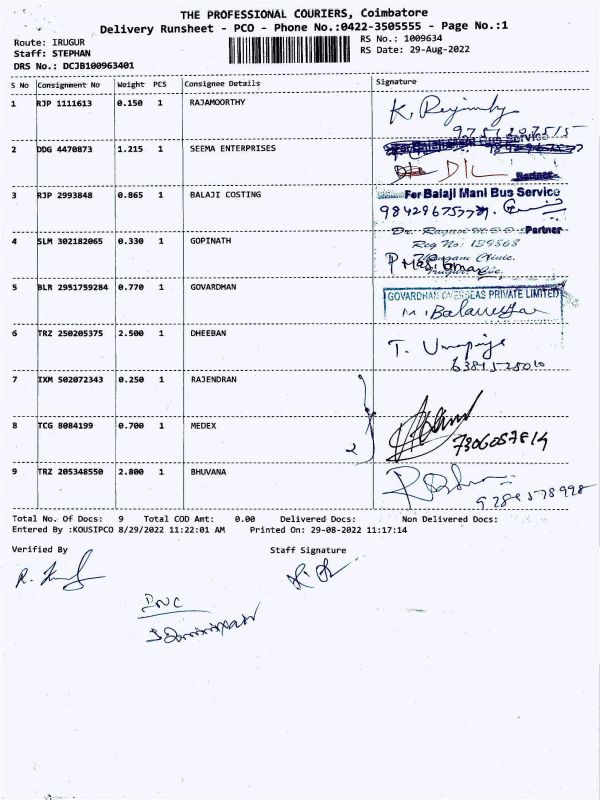 THE PROFESSIONAL COURIERS, Coimbatore
Delivery Runsheet - PCO - Phone No.:0422-3505555 - Page No.:1
Route: IRUGUR
RS No.: 1009634
Staff: STEPHAN
RS Date: 29-Aug-2022
DRS No.: DCJB100963401
S No Consignment No Weight PCS Consignee Details Signature
1 RJP 1111613 0.150 1 RAJAMOORTHY
2 DDG 4470873 1.215 1 SEEMA ENTERPRISES
Partner
3 RJP 2993848 0.865 1 BALAJI COSTING For Balaji Mani Bus Service
Partner
4 SLM 302182065 0.330 1 GOPINATH
Reg No: 139868
5 BLR 2951759284 0.770 1 GOVARDHAN GOVARDHAN OVERSEAS PRIVATE LIMITED
6 TRZ 250205375 2.500 1 DHEEBAN
7 IXM 502072343 0.250 1 RAJENDRAN
8 TCG 8084199 0.700 1 MEDEX
7306057814
9 TRZ 205348550 2.800 1 BHUVANA
Total No. Of Docs: 9 Total COD Amt: 0.00 Delivered Docs: Non Delivered Docs:
Entered By :KOUSIPCO 8/29/2022 11:22:01 AM Printed On: 29-08-2022 11:17:14
Verified By Staff Signature